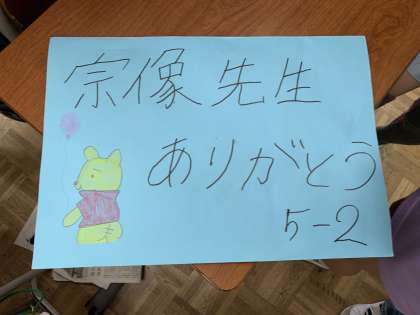 宗像先生
ありがとう
5-2